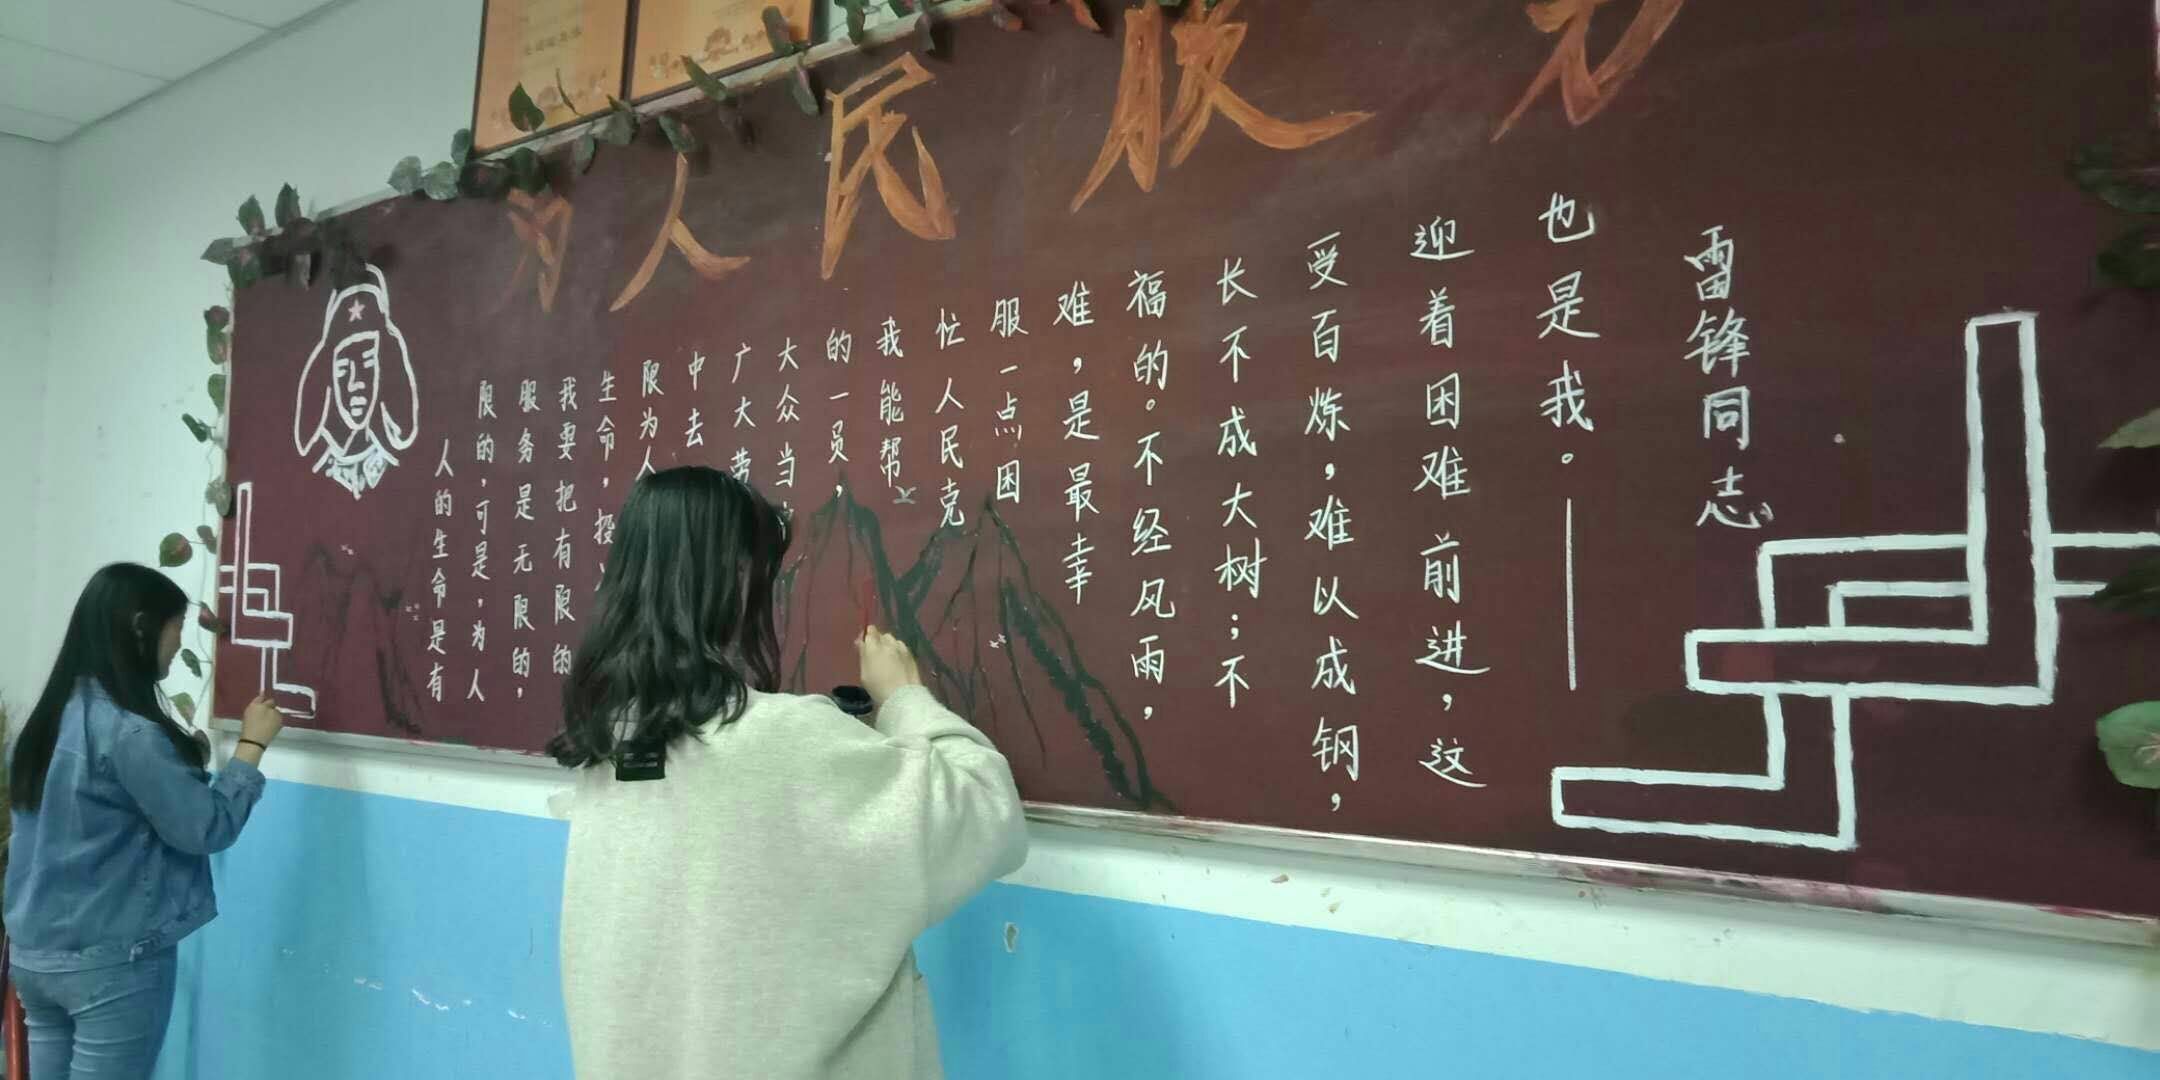 为人民服务
人的生命是有
限的，可是，为人
服务是无限的，
我要把有限的
生命，投
限为人
中去
广大劳
大众当
的一员，
我能帮
忙人民克
服一点困
难，是最幸
福的。不经风雨，
长不成大树；不
受百炼，难以成钢，
迎着困难前进，这
也是我。——
雷锋同志